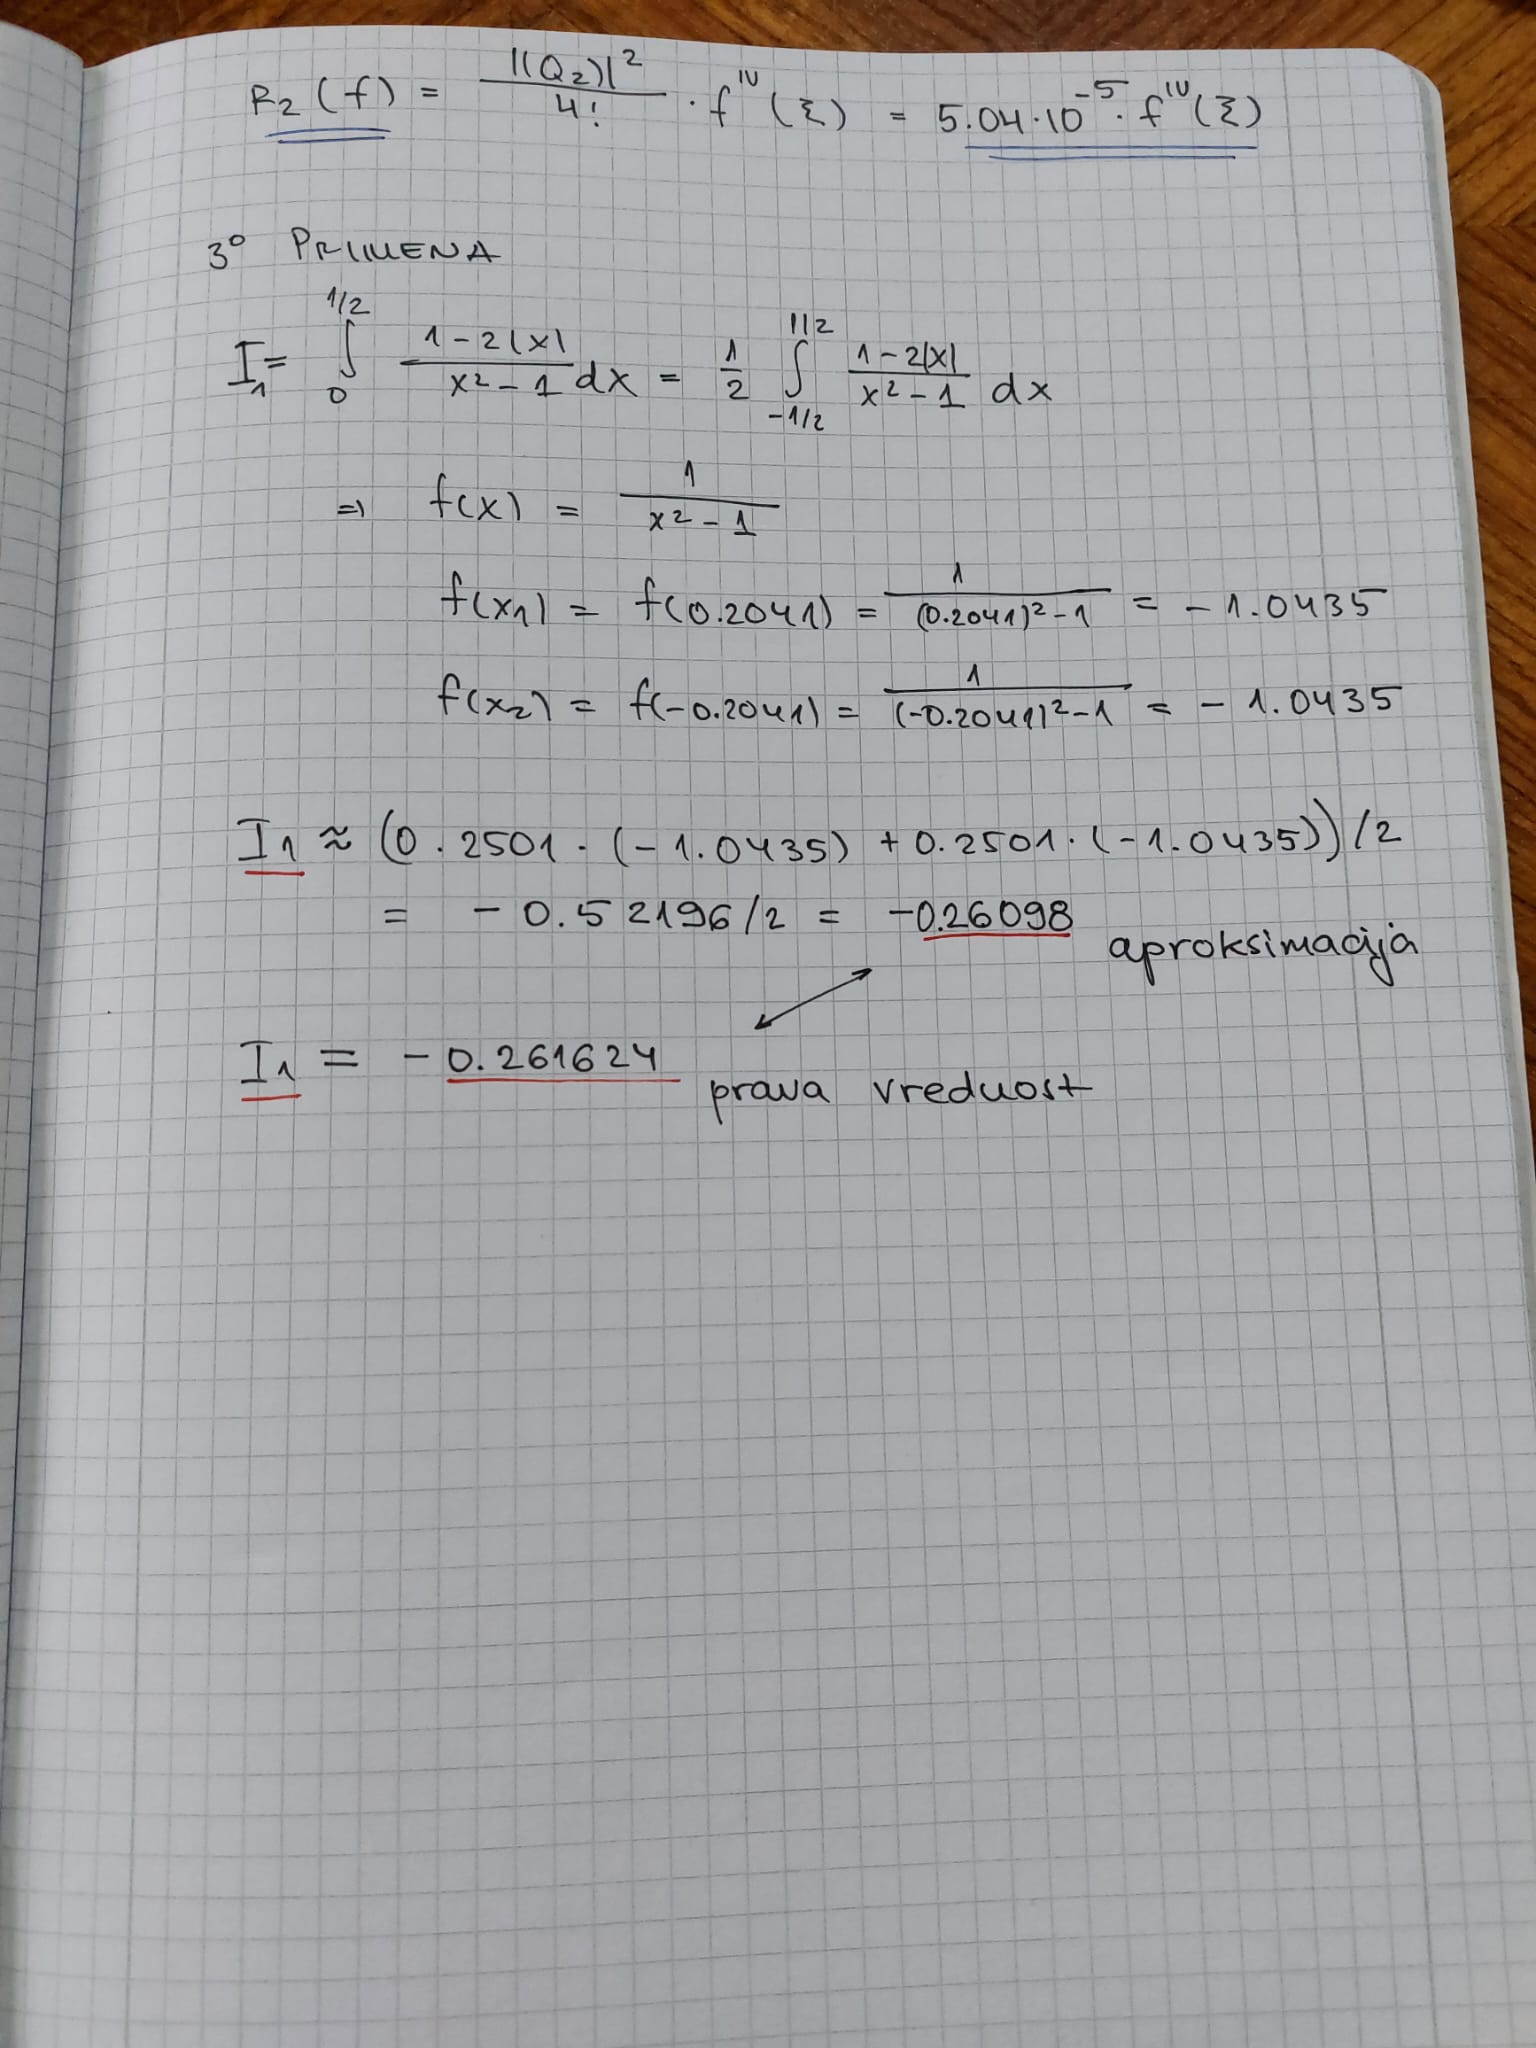 R₂(f) = ||(Q₂)|² / 4! · f^IV(ξ) = 5.04·10⁻⁵ · f^IV(ξ)
3° PRIMENA
I₁ = ∫₀^1/2 (1-2|x|)/(x²-1) dx = 1/2 ∫_-1/2^1/2 (1-2|x|)/(x²-1) dx
⇒ f(x) = 1/(x²-1)
f(x₁) = f(0.2041) = 1/((0.2041)²-1) = -1.0435
f(x₂) = f(-0.2041) = 1/((-0.2041)²-1) = -1.0435
I₁ ≈ (0.2501·(-1.0435) + 0.2501·(-1.0435))/2
= -0.52196/2 = -0.26098 aproksimacija
I₁ = -0.261624 prava vrednost